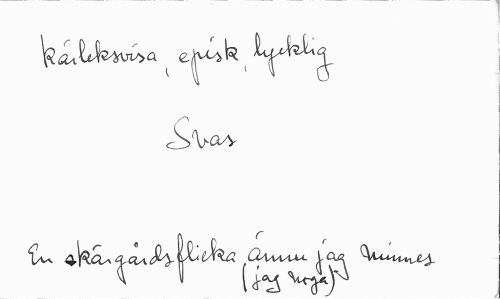 Kärleksvisa, episk, lycklig
Svas
En skärgårdsflicka ännu jag minnes
(jag noga)